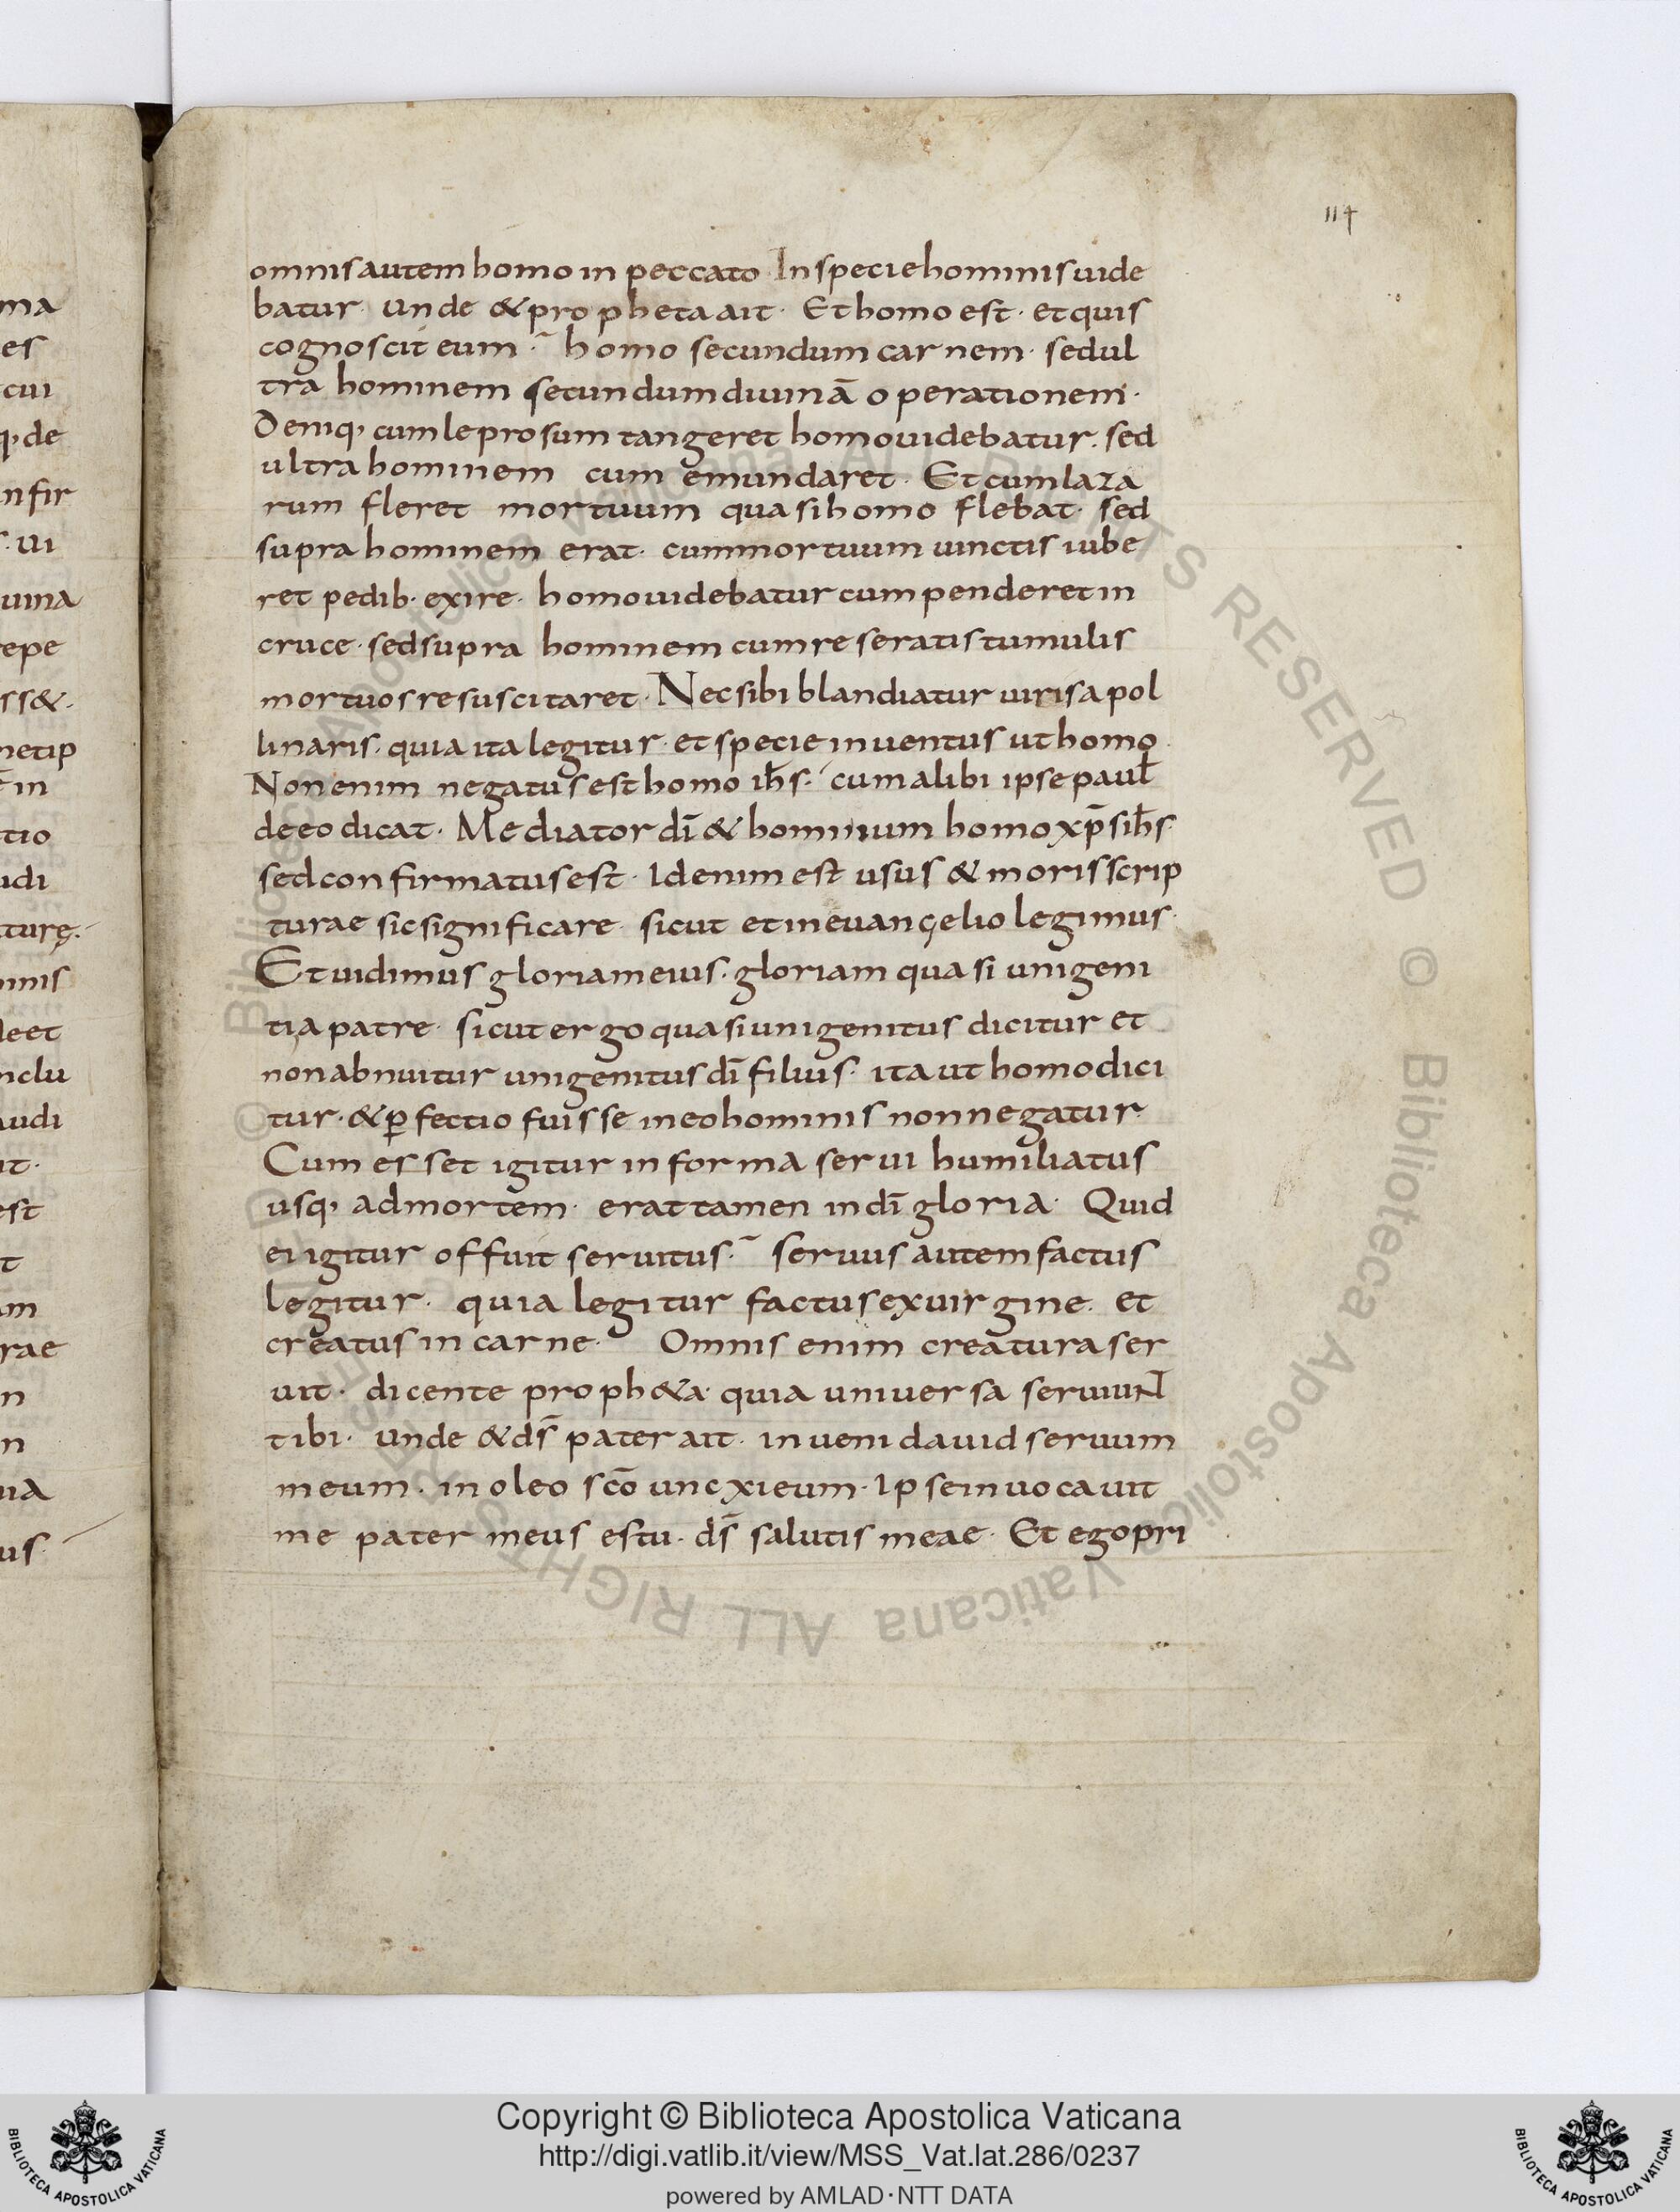 114
omnis autem homo in peccato In specie hominis uide
batur· unde & propheta ait· Et homo est· et quis
cognoscit eum· homo secundum carnem· sed ul
tra hominem secundum diuinā operationem·
Deniq, cum leprosum tangeret homo uidebatur· sed
ultra hominem cum emundaret· Et cum laza
rum fleret mortuum quasi homo flebat· sed
supra hominem erat· cum mortuum uinctis iube
ret pedib· exire· homo uidebatur cum penderet in
cruce· sed supra hominem cum reseratis tumulis
mortuos resuscitaret· Nec sibi blandiatur uiris apol
linaris· quia ita legitur· et specie inuentus ut homo·
Non enim negatus est homo ih̄s· cum alibi ipse paul̄
de eo dicat· Mediator dī & hominum homo xp̄s ih̄s·
sed confirmatus est· Id enim est usus & moris scrip
turae sic significare· sicut et in euangelio legimus·
Et uidimus gloriam eius· gloriam quasi unigeni
ti a patre· sicut ergo quasi unigenitus dicitur et
non abnuitur unigenitus dī filius· ita ut homo dici
tur· & p̱fectio fuisse in eo hominis non negatur·
Cum esset igitur in forma serui humiliatus
usq, ad mortem· erat tamen in dī gloria· Quid
ei igitur offuit seruitus· seruus autem factus
legitur· quia legitur factus ex uirgine· et
creatus in carne· Omnis enim creatura ser
uit· dicente proph&a· quia uniuersa seruiunt
tibi· unde & ds̄ pater ait· inueni dauid seruum
meum· in oleo scō uncxi eum· Ipse inuocauit
me pater meus es tu· ds̄ salutis meae· Et ego pri
ma
es
cui
q, de
nfir
· ui
uina
repe
ss&·
metip
in
tio
udi
turę·
minis
leet
nclu
audi
it·
est
t
am
rae
n
n
uia
us
© Biblioteca Apostolica Vaticana ALL RIGHTS RESERVED © Biblioteca Apostolica Vaticana ALL RIGHTS RESERVED
Copyright © Biblioteca Apostolica Vaticana
http://digi.vatlib.it/view/MSS_Vat.lat.286/0237
powered by AMLAD·NTT DATA
BIBLIOTECA APOSTOLICA VATICANA
BIBLIOTECA APOSTOLICA VATICANA